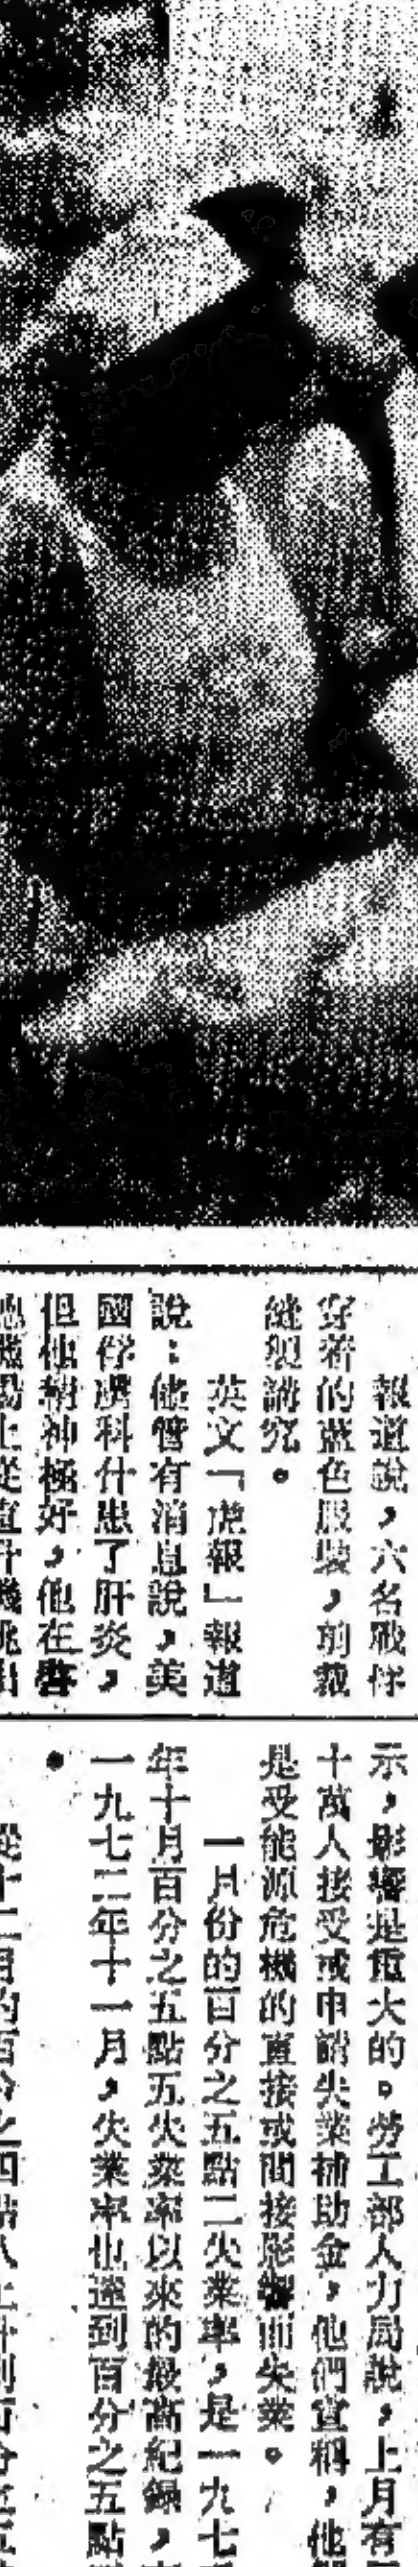 報道說，六名戰俘
穿着的藍色服裝，剪裁
縫製講究。
英文「虎報」報道
說：儘管有消息說，美
國俘虜科什患了肝炎，
但他精神極好，他在啓
示，影響是重大的。勞工部人力局說，上月有
十萬人接受或申請失業補助金，他們宣稱，他
是受能源危機的直接或間接影響而失業。
一月份的百分之五點二失業率，是一九七
年十月百分之五點五失業率以來的最高紀錄，
一九七二年十一月，失業率也達到百分之五點
。